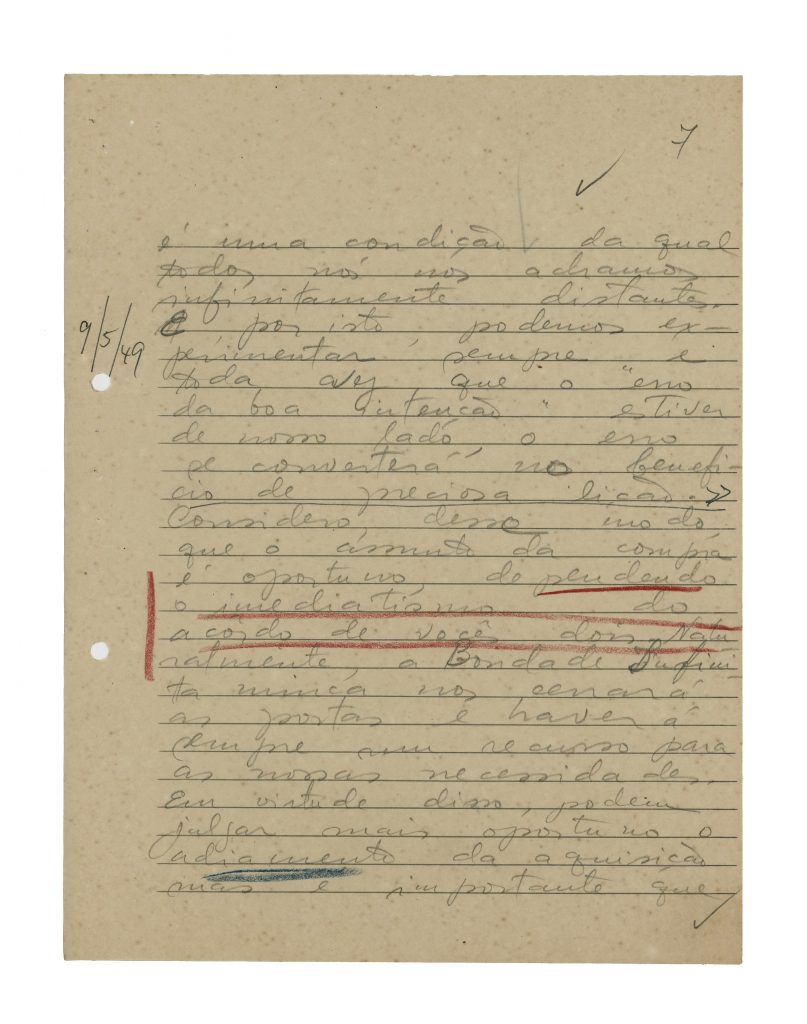 7
é uma condição da qual
todos nós nos achamos
infinitamente distantes.
9/5/49
E por isto, podemos ex-
perimentar, sempre e
toda vez que o "erro
da boa intenção" estiver
de nosso lado, o erro
se converterá no benefí-
cio de preciosa lição.
Considero, desse modo
que o assunto da compra
é oportuno, dependendo
o imediatismo do
acôrdo de vocês dois. Natu
ralmente, a Bondade Infini-
ta nunca nos cerrará
as portas e haverá
sempre um recurso para
as nossas necessidades.
Em virtude disso, podem
julgar mais oportuno o
adiamento da aquisição
mas é importante que